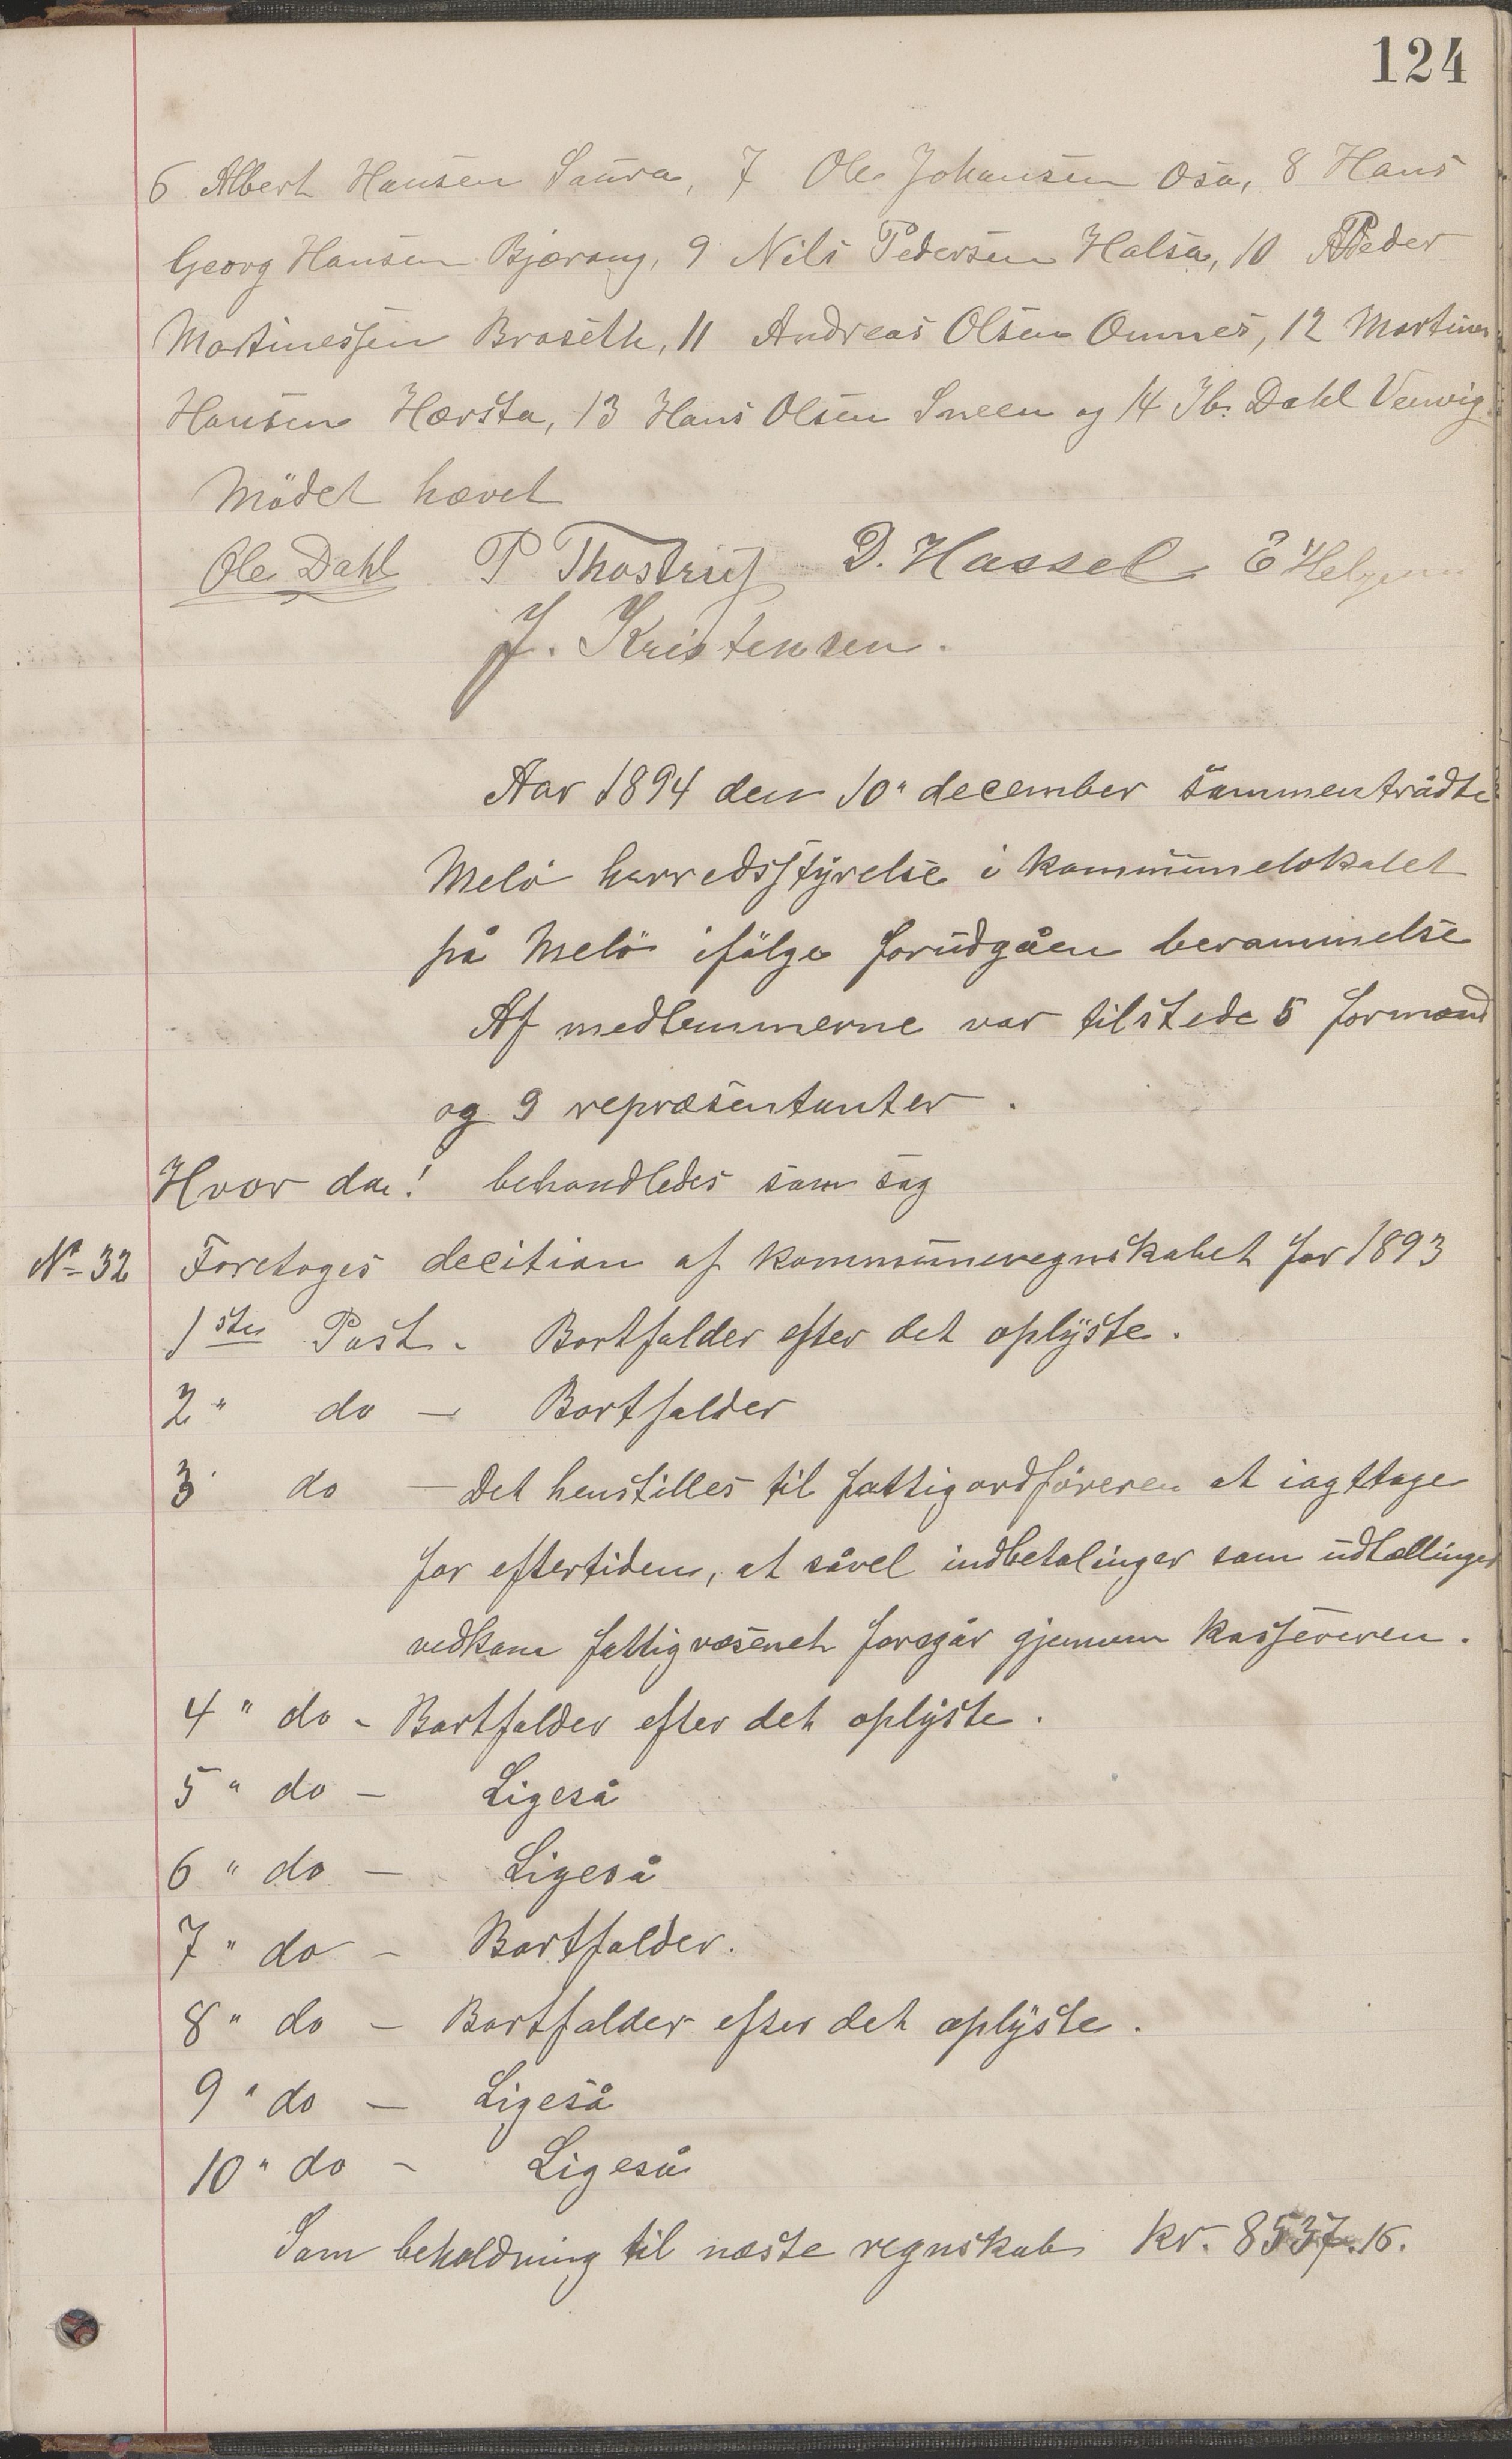 124
6 Albert Hansen Saura, 7 Ole Johansen Osa, 8 Hans
Georg Hansen Bjærang, 9 Nils Pedersen Halsa, 10 Peder
Martinessen Braseth, 11 Andreas Olsen Ornnes, 12 Martines
Hansen Hærsta, 13 Hans Olsen Sneen og 14 Ib. Dahl Venvig
Mödet hævet
Ole Dahl P Thostrup D. Hassel E Helgesen
J. Kristensen.
Aar 1894 den 10" december sammentrådte
Melö herredsstyrelse i kommunelokalet
på Melö ifölge forudgåen berammelse
Af medlemmerne var tilstede 5 formænd
og 9 repræsentanter.
Hvor da! behandledes som sag
No 32 Foretoges decition af kommuneregnskabet for 1893
1ste Post - Bortfalder efter det oplyste.
2 " do - Bortfalder
3 " do - Det henstilles til fattigordföreren at iagttage
for eftertiden, at såvel indbetalinger som udtællinger
vedkom fattigvæsenet foregår gjennem kassereren.
4 " do - Bortfalder efter det oplyste.
5 " do - Ligeså
6 " do - Ligeså
7 " do - Bortfalder.
8 " do - Bortfalder efter det oplyste.
9 " do - Ligeså
10 " do - Ligeså
Som beholdning til næste regnskab kr. 8537.16.